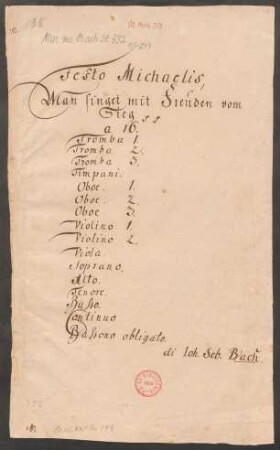 Mus. ms. Bach St 652
Festo Michaelis,
Man singet mit Freuden vom
Sieg
a 16.
Tromba 1.
Tromba 2.
Tromba 3.
Timpani.
Oboe. 1.
Oboe. 2.
Oboe 3.
Violino 1.
Violino 2.
Viola
Soprano.
Alto.
Tenore.
Basso.
Continuo
Bassono obligato.
di Joh. Seb. Bach.